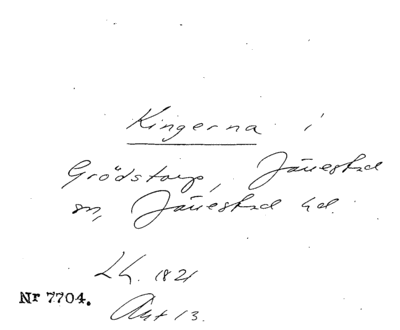 Kingerna i
Grödstorp, Jönestad
sn, Jönestad hd.
Lh. 1821
Nr 7704.
Akt 13.